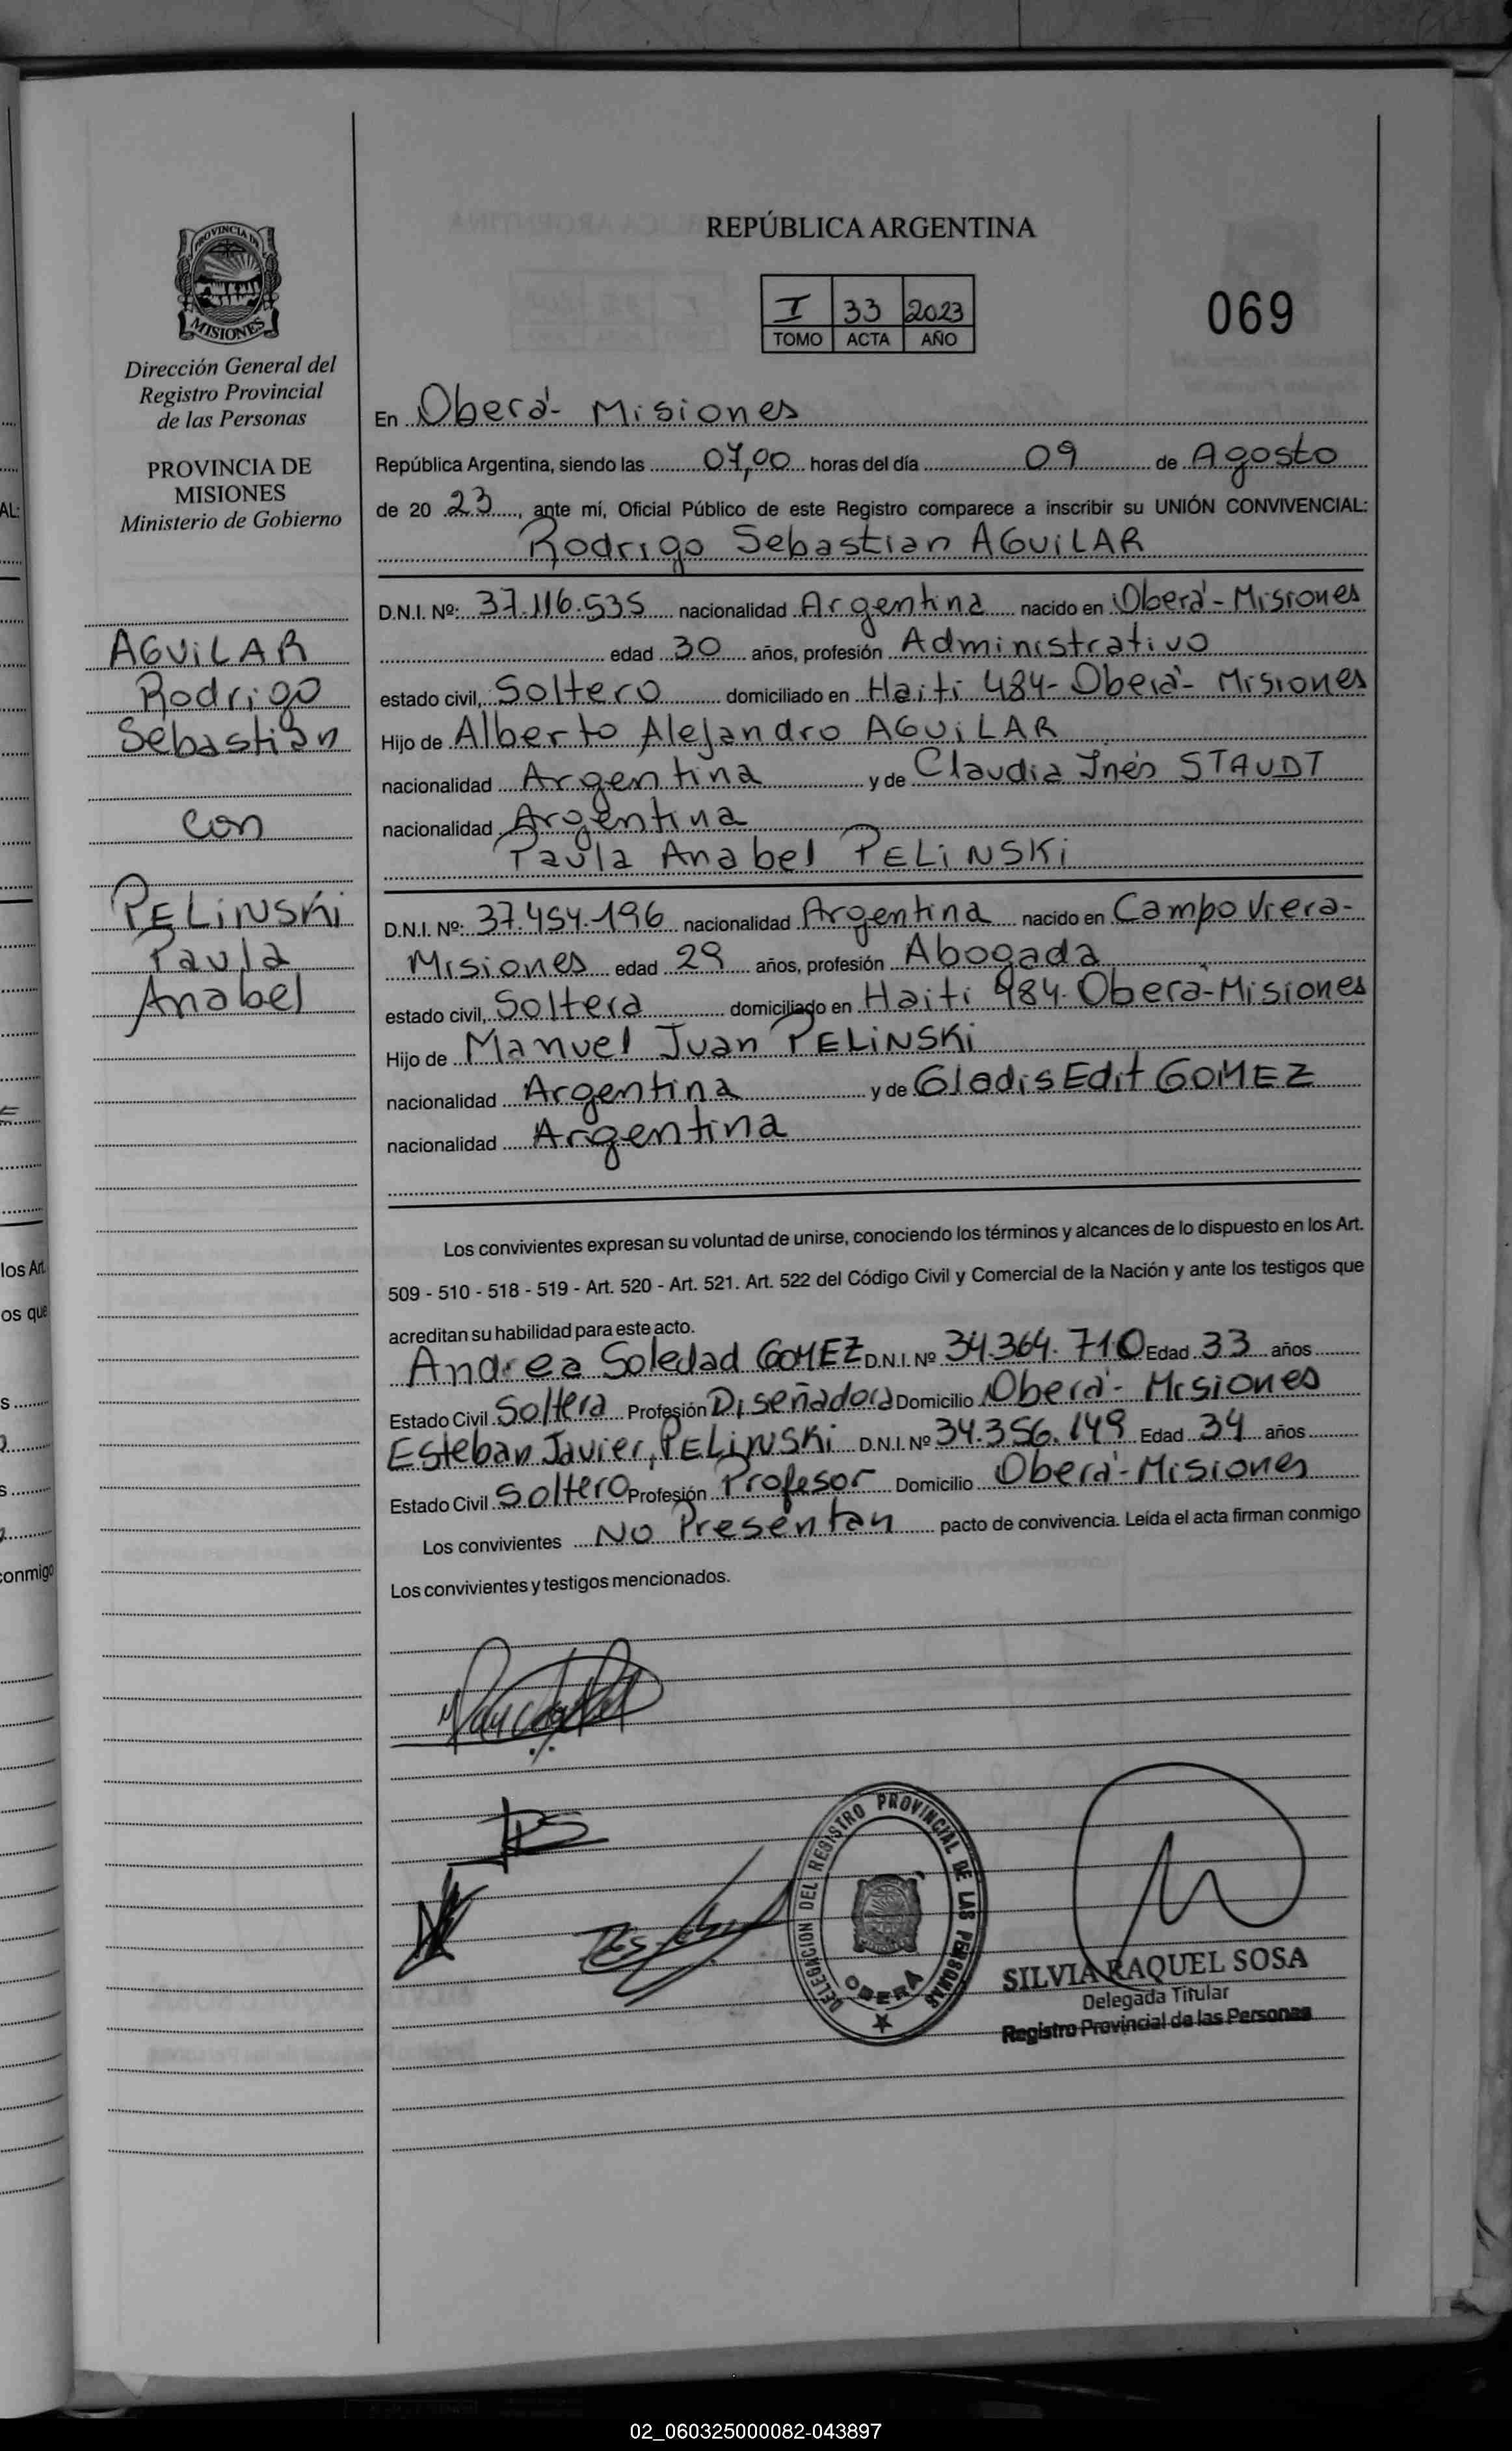 REPÚBLICA ARGENTINA
PROVINCIA DE
MISIONES
I 33 2023
TOMO ACTA AÑO
069
Dirección General del
Registro Provincial
de las Personas
PROVINCIA DE
MISIONES
Ministerio de Gobierno
AGUILAR
Rodrigo
Sebastián
con
PELINSKI
Paula
Anabel
En Oberá- Misiones
República Argentina, siendo las 07,00 horas del día 09 de Agosto
de 20 23, ante mí, Oficial Público de este Registro comparece a inscribir su UNIÓN CONVIVENCIAL:
Rodrigo Sebastian AGUILAR
D.N.I. Nº: 37.116.535 nacionalidad Argentina nacido en Oberá - Misiones
edad 30 años, profesión Administrativo
estado civil, Soltero domiciliado en Haití 484- Oberá- Misiones
Hijo de Alberto Alejandro AGUILAR
nacionalidad Argentina y de Claudia Inés STAUDT
nacionalidad Argentina
Paula Anabel PELINSKI
D.N.I. Nº: 37.454.196 nacionalidad Argentina nacido en Campo Viera-
Misiones edad 29 años, profesión Abogada
estado civil, Soltera domiciliado en Haití 484- Oberá-Misiones
Hijo de Manuel Juan PELINSKI
nacionalidad Argentina y de Gladis Edit GOMEZ
nacionalidad Argentina
Los convivientes expresan su voluntad de unirse, conociendo los términos y alcances de lo dispuesto en los Art.
509 - 510 - 518 - 519 - Art. 520 - Art. 521. Art. 522 del Código Civil y Comercial de la Nación y ante los testigos que
acreditan su habilidad para este acto.
Andrea Soledad GOMEZ D.N.I. Nº 34.364.710 Edad 33 años
Estado Civil Soltera Profesión Diseñadora Domicilio Oberá - Misiones
Esteban Javier PELINSKI D.N.I. Nº 34.356.149 Edad 34 años
Estado Civil Soltero Profesión Profesor Domicilio Oberá-Misiones
Los convivientes No Presentan pacto de convivencia. Leída el acta firman conmigo
Los convivientes y testigos mencionados.
DELEGACION DEL REGISTRO PROVINCIAL DE LAS PERSONAS
OBERÁ
SILVIA RAQUEL SOSA
Delegada Titular
Registro Provincial de las Personas
AL:
los Art.
os que
conmigo
02_060325000082-043897